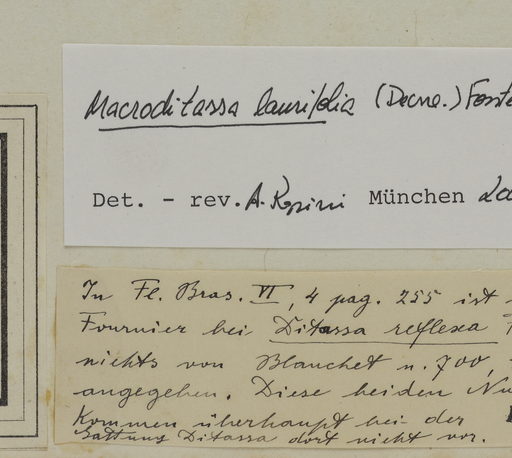 Macroditassa laurifolia (Decne.) Fonte
Det. - rev. A. Rapini München
In Fl. Bras. VI, 4 pag. 255 ist
Fournier bei Ditassa reflexa
nichts von Blanchet n. 700,
angegeben. Diese beiden Nu
kommen überhaupt bei der
Gattung Ditassa dort nicht vor.